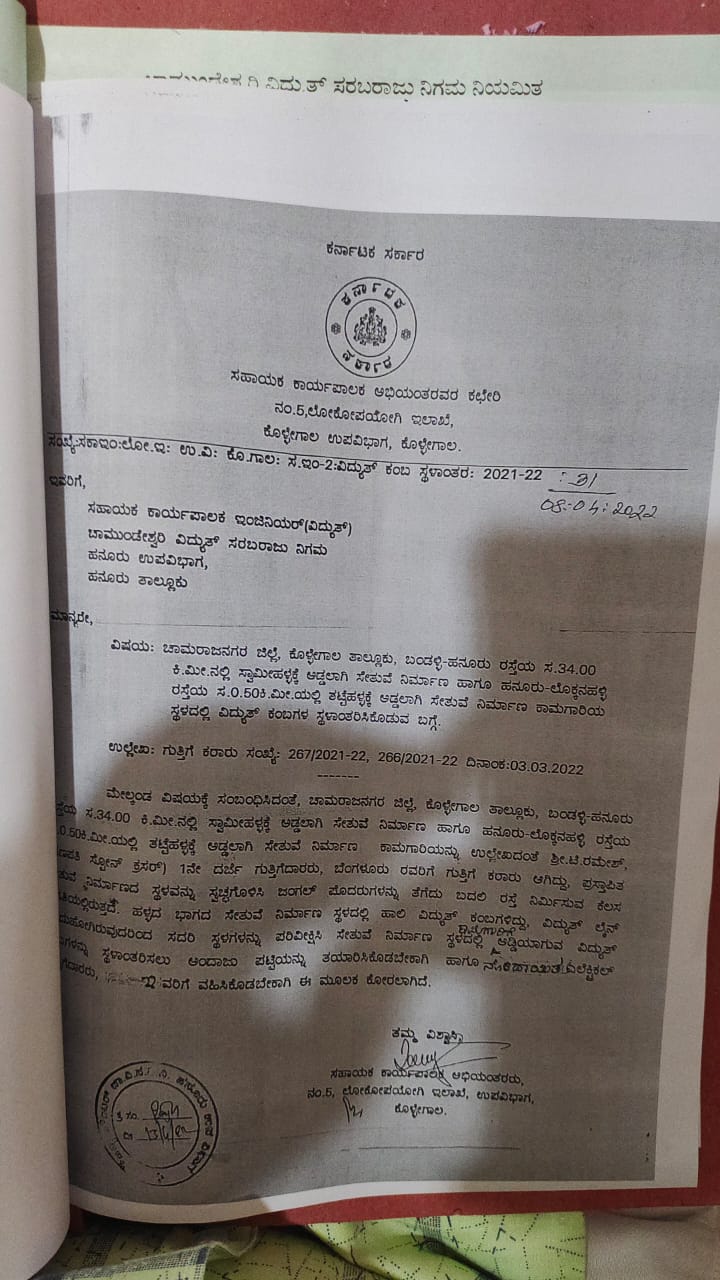 ವಿದ್ಯುತ್ ಸರಬರಾಜು ನಿಗಮ ನಿಯಮಿತ
ಕರ್ನಾಟಕ ಸರ್ಕಾರ
ಕರ್ನಾಟಕ
ಸರ್ಕಾರ
ಸಹಾಯಕ ಕಾರ್ಯಪಾಲಕ ಅಭಿಯಂತರವರ ಕಛೇರಿ
ನಂ.5,ಲೋಕೋಪಯೋಗಿ ಇಲಾಖೆ,
ಕೊಳ್ಳೇಗಾಲ ಉಪವಿಭಾಗ, ಕೊಳ್ಳೇಗಾಲ.
ಸಂಖ್ಯೆ:ಸಕಾಇಂ:ಲೋ.ಇ: ಉ.ವಿ: ಕೊ.ಗಾಲ: ಸ.ಇಂ-2:ವಿದ್ಯುತ್ ಕಂಬ ಸ್ಥಳಾಂತರ: 2021-22 : 31
08:04:2022
ಇವರಿಗೆ,
ಸಹಾಯಕ ಕಾರ್ಯಪಾಲಕ ಇಂಜಿನಿಯರ್(ವಿದ್ಯುತ್)
ಚಾಮುಂಡೇಶ್ವರಿ ವಿದ್ಯುತ್ ಸರಬರಾಜು ನಿಗಮ
ಹನೂರು ಉಪವಿಭಾಗ,
ಹನೂರು ತಾಲ್ಲೂಕು
ಮಾನ್ಯರೇ,
ವಿಷಯ: ಚಾಮರಾಜನಗರ ಜಿಲ್ಲೆ, ಕೊಳ್ಳೇಗಾಲ ತಾಲ್ಲೂಕು, ಬಂಡಳ್ಳಿ-ಹನೂರು ರಸ್ತೆಯ ಸ.34.00
ಕಿ.ಮೀ.ನಲ್ಲಿ ಸ್ವಾಮೀಹಳ್ಳಕ್ಕೆ ಅಡ್ಡಲಾಗಿ ಸೇತುವೆ ನಿರ್ಮಾಣ ಹಾಗೂ ಹನೂರು-ಲೊಕ್ಕನಹಳ್ಳಿ
ರಸ್ತೆಯ ಸ.0.50ಕಿ.ಮೀ.ಯಲ್ಲಿ ತಟ್ಟೆಹಳ್ಳಕ್ಕೆ ಅಡ್ಡಲಾಗಿ ಸೇತುವೆ ನಿರ್ಮಾಣ ಕಾಮಗಾರಿಯ
ಸ್ಥಳದಲ್ಲಿ ವಿದ್ಯುತ್ ಕಂಬಗಳ ಸ್ಥಳಾಂತರಿಸಿಕೊಡುವ ಬಗ್ಗೆ.
ಉಲ್ಲೇಖ: ಗುತ್ತಿಗೆ ಕರಾರು ಸಂಖ್ಯೆ: 267/2021-22, 266/2021-22 ದಿನಾಂಕ:03.03.2022
-------
ಮೇಲ್ಕಂಡ ವಿಷಯಕ್ಕೆ ಸಂಬಂಧಿಸಿದಂತೆ, ಚಾಮರಾಜನಗರ ಜಿಲ್ಲೆ, ಕೊಳ್ಳೇಗಾಲ ತಾಲ್ಲೂಕು, ಬಂಡಳ್ಳಿ-ಹನೂರು
ಸ.34.00 ಕಿ.ಮೀ.ನಲ್ಲಿ ಸ್ವಾಮೀಹಳ್ಳಕ್ಕೆ ಅಡ್ಡಲಾಗಿ ಸೇತುವೆ ನಿರ್ಮಾಣ ಹಾಗೂ ಹನೂರು-ಲೊಕ್ಕನಹಳ್ಳಿ ರಸ್ತೆಯ
.0.50ಕಿ.ಮೀ.ಯಲ್ಲಿ ತಟ್ಟೆಹಳ್ಳಕ್ಕೆ ಅಡ್ಡಲಾಗಿ ಸೇತುವೆ ನಿರ್ಮಾಣ ಕಾಮಗಾರಿಯನ್ನು ಉಲ್ಲೇಖದಂತೆ ಶ್ರೀ.ಟಿ.ರಮೇಶ್,
ಸ್ಟೋನ್ ಕ್ರಸರ್) 1ನೇ ದರ್ಜೆ ಗುತ್ತಿಗೆದಾರರು, ಬೆಂಗಳೂರು ರವರಿಗೆ ಗುತ್ತಿಗೆ ಕರಾರು ಆಗಿದ್ದು, ಪ್ರಸ್ತಾಪಿತ
ನಿರ್ಮಾಣದ ಸ್ಥಳವನ್ನು ಸ್ವಚ್ಛಗೊಳಿಸಿ ಜಂಗಲ್ ಪೊದರುಗಳನ್ನು ತೆಗೆದು ಬದಲಿ ರಸ್ತೆ ನಿರ್ಮಿಸುವ ಕೆಲಸ
ಹಳ್ಳದ ಭಾಗದ ಸೇತುವೆ ನಿರ್ಮಾಣ ಸ್ಥಳದಲ್ಲಿ ಹಾಲಿ ವಿದ್ಯುತ್ ಕಂಬಗಳಿದ್ದು, ವಿದ್ಯುತ್ ಲೈನ್
ಸದರಿ ಸ್ಥಳಗಳನ್ನು ಪರಿವೀಕ್ಷಿಸಿ ಸೇತುವೆ ನಿರ್ಮಾಣ ಸ್ಥಳದಲ್ಲಿ ಅಡ್ಡಿಯಾಗುವ ವಿದ್ಯುತ್
ಸ್ಥಳಾಂತರಿಸಲು ಅಂದಾಜು ಪಟ್ಟಿಯನ್ನು ತಯಾರಿಸಿಕೊಡಬೇಕಾಗಿ ಹಾಗೂ ಎಲೆಕ್ಟ್ರಿಕಲ್
ವರಿಗೆ ವಹಿಸಿಕೊಡಬೇಕಾಗಿ ಈ ಮೂಲಕ ಕೋರಲಾಗಿದೆ.
ತಮ್ಮ ವಿಶ್ವಾಸಿ
ಸಹಾಯಕ ಕಾರ್ಯಪಾಲಕ ಅಭಿಯಂತರರು,
ನಂ.5, ಲೋಕೋಪಯೋಗಿ ಇಲಾಖೆ, ಉಪವಿಭಾಗ,
ಕೊಳ್ಳೇಗಾಲ.